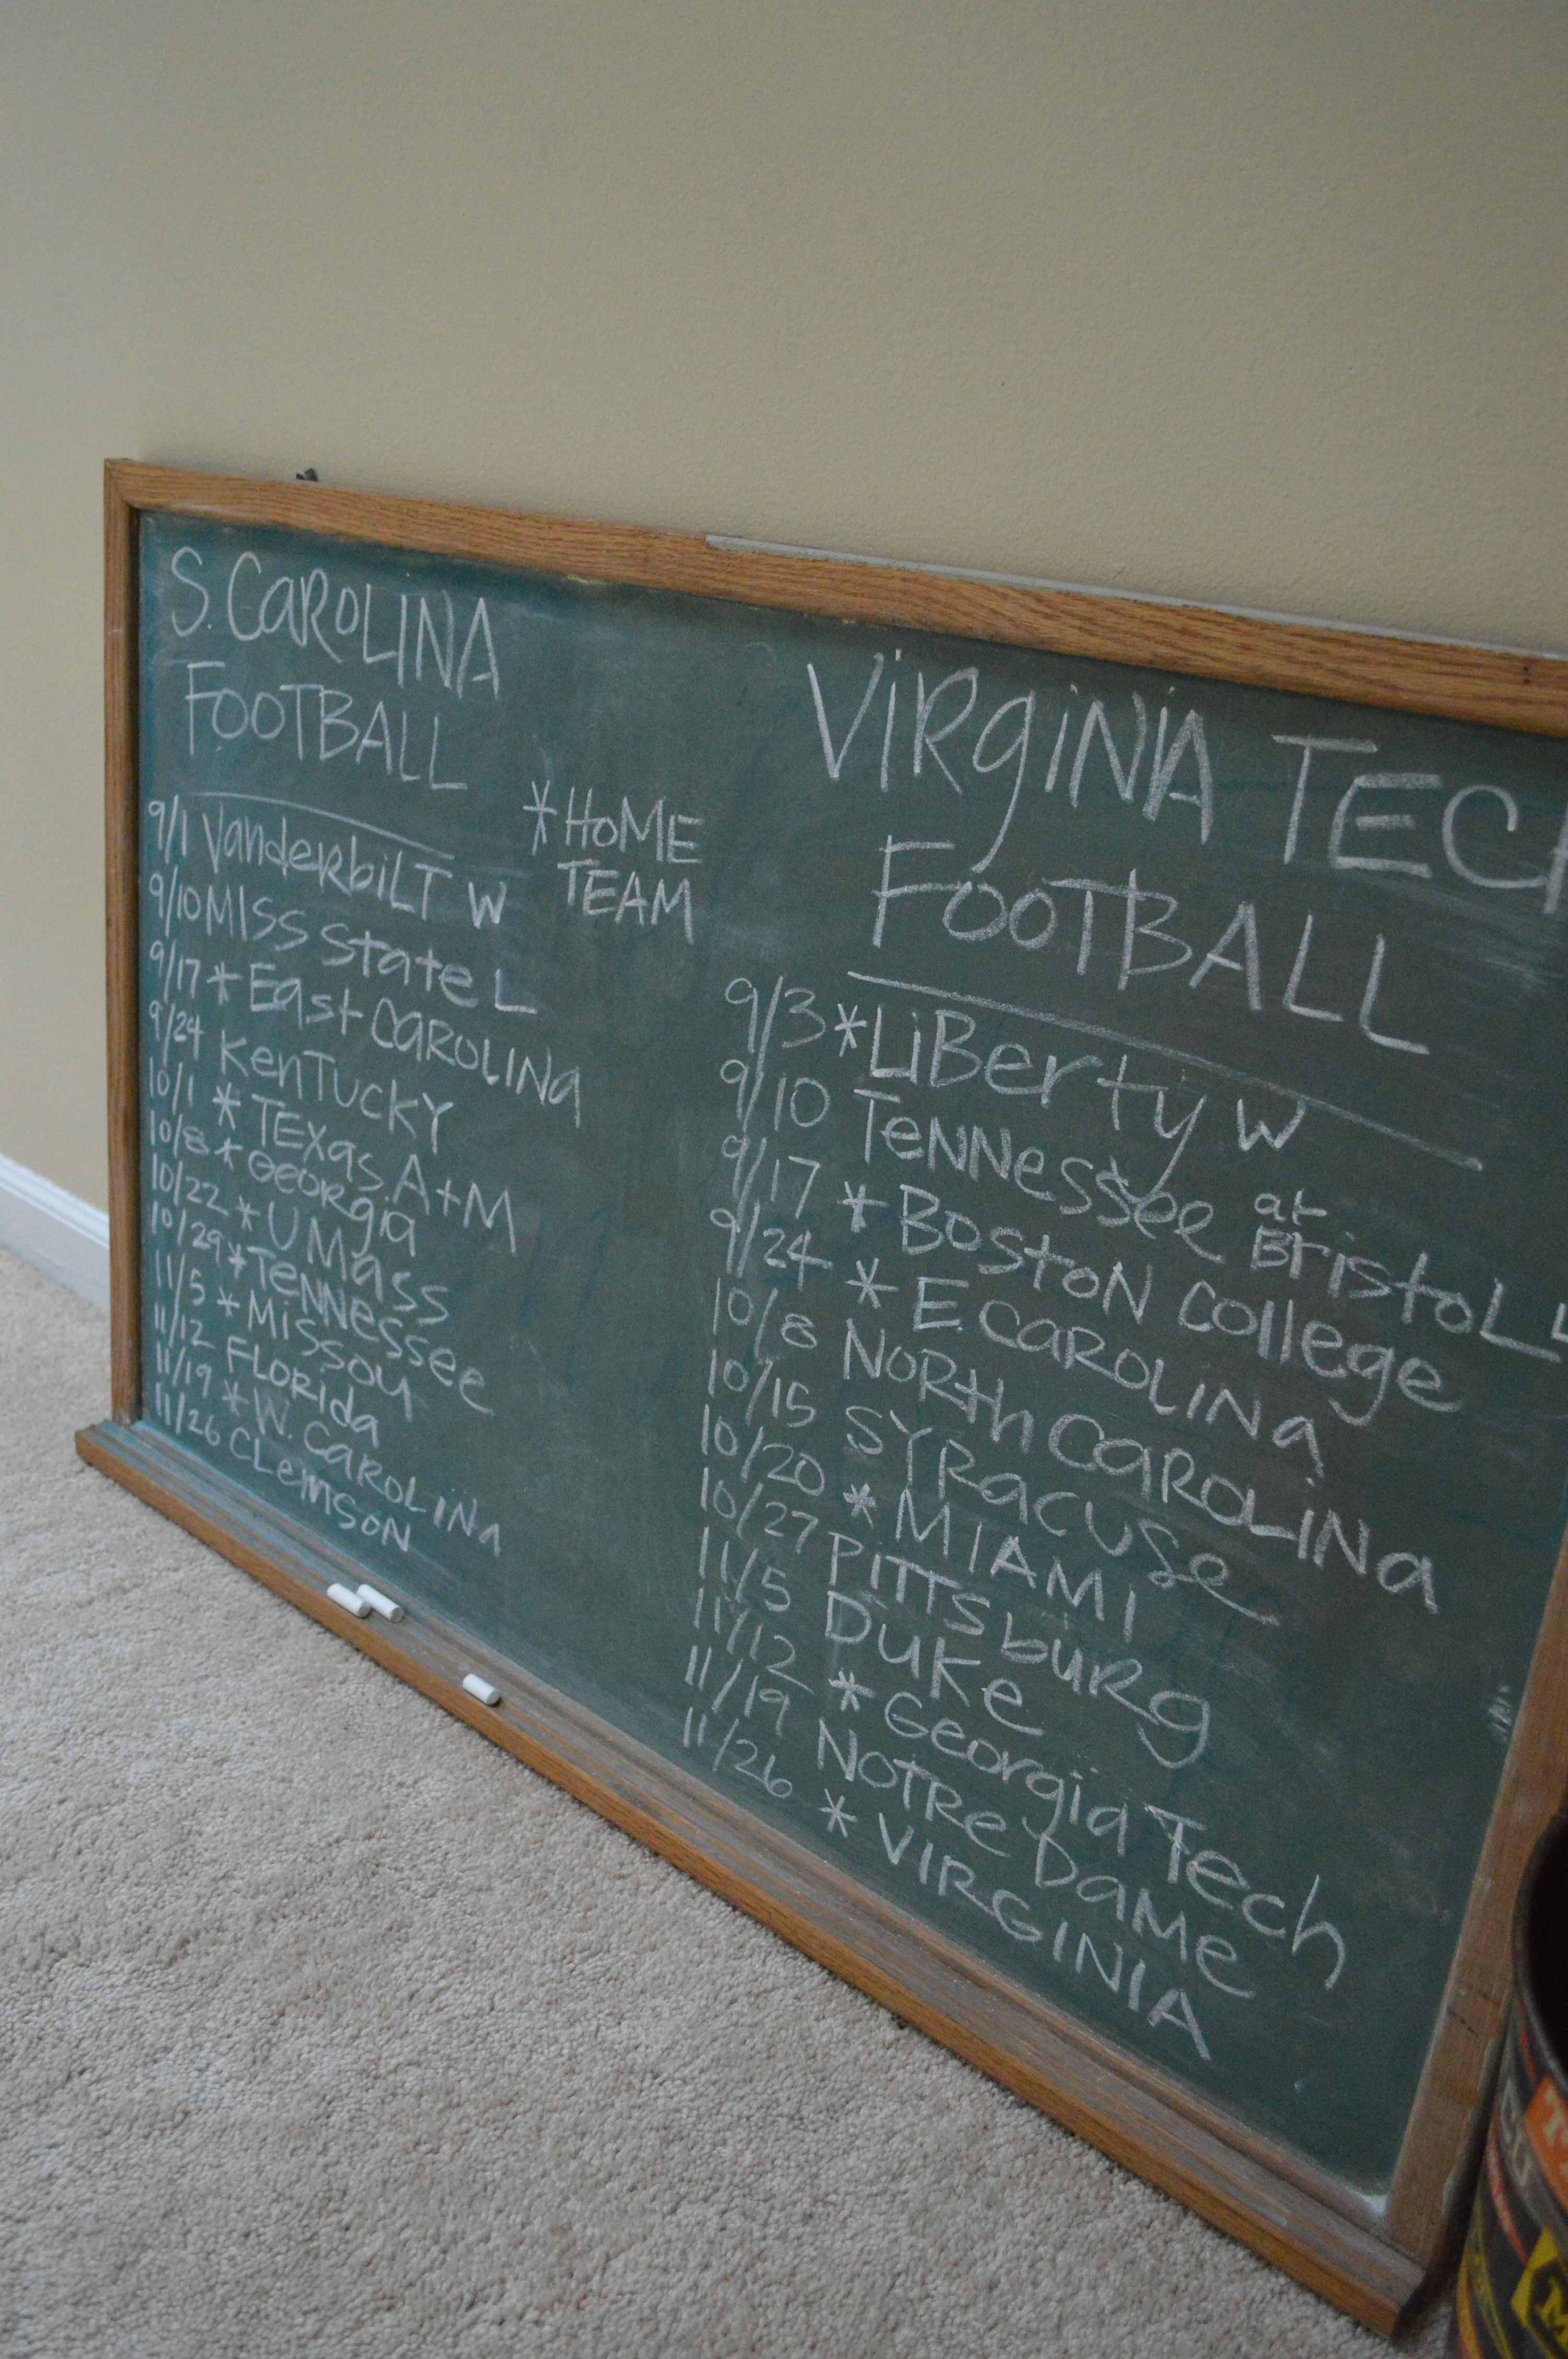 S. CAROLINA
FOOTBALL
* HOME
TEAM
9/1 Vanderbilt W
9/10 MISS State L
9/17 * East CAROLINA
9/24 KENTUCKY
10/1 * TEXAS A+M
10/8 * GEORgia
10/22 * U MASS
10/29 * TENNESSEE
11/5 * MISSOU
11/12 FLORIDA
11/19 * W. CAROLINA
11/26 CLEMSON
VIRGINIA TECH
FOOTBALL
9/3 * LiBerty W
9/10 TENNESSEE at Bristol L
9/17 * BOSTON COLLEGE
9/24 * E. CAROLINA
10/8 NORTH CAROLINA
10/15 SYRACUSE
10/20 * MIAMI
10/27 PITTSBURG
11/5 DUKE
11/12 * GEORGIA TECH
11/19 NOTRE DAME
11/26 * VIRGINIA